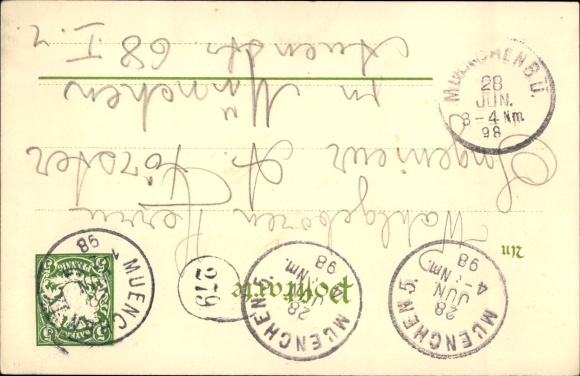 Postkarte
An
Wohlgeboren Herrn
Ingenieur A. Förster
in München
Auenstr. 68 I. r.
279
MUENCHEN B.U.
28
JUN.
3-4 Nm.
98
MUENCHEN 5.
28
JUN.
4- Nm.
98
MUENCHEN 5.
28
Nm.
98
MUENCHEN
98